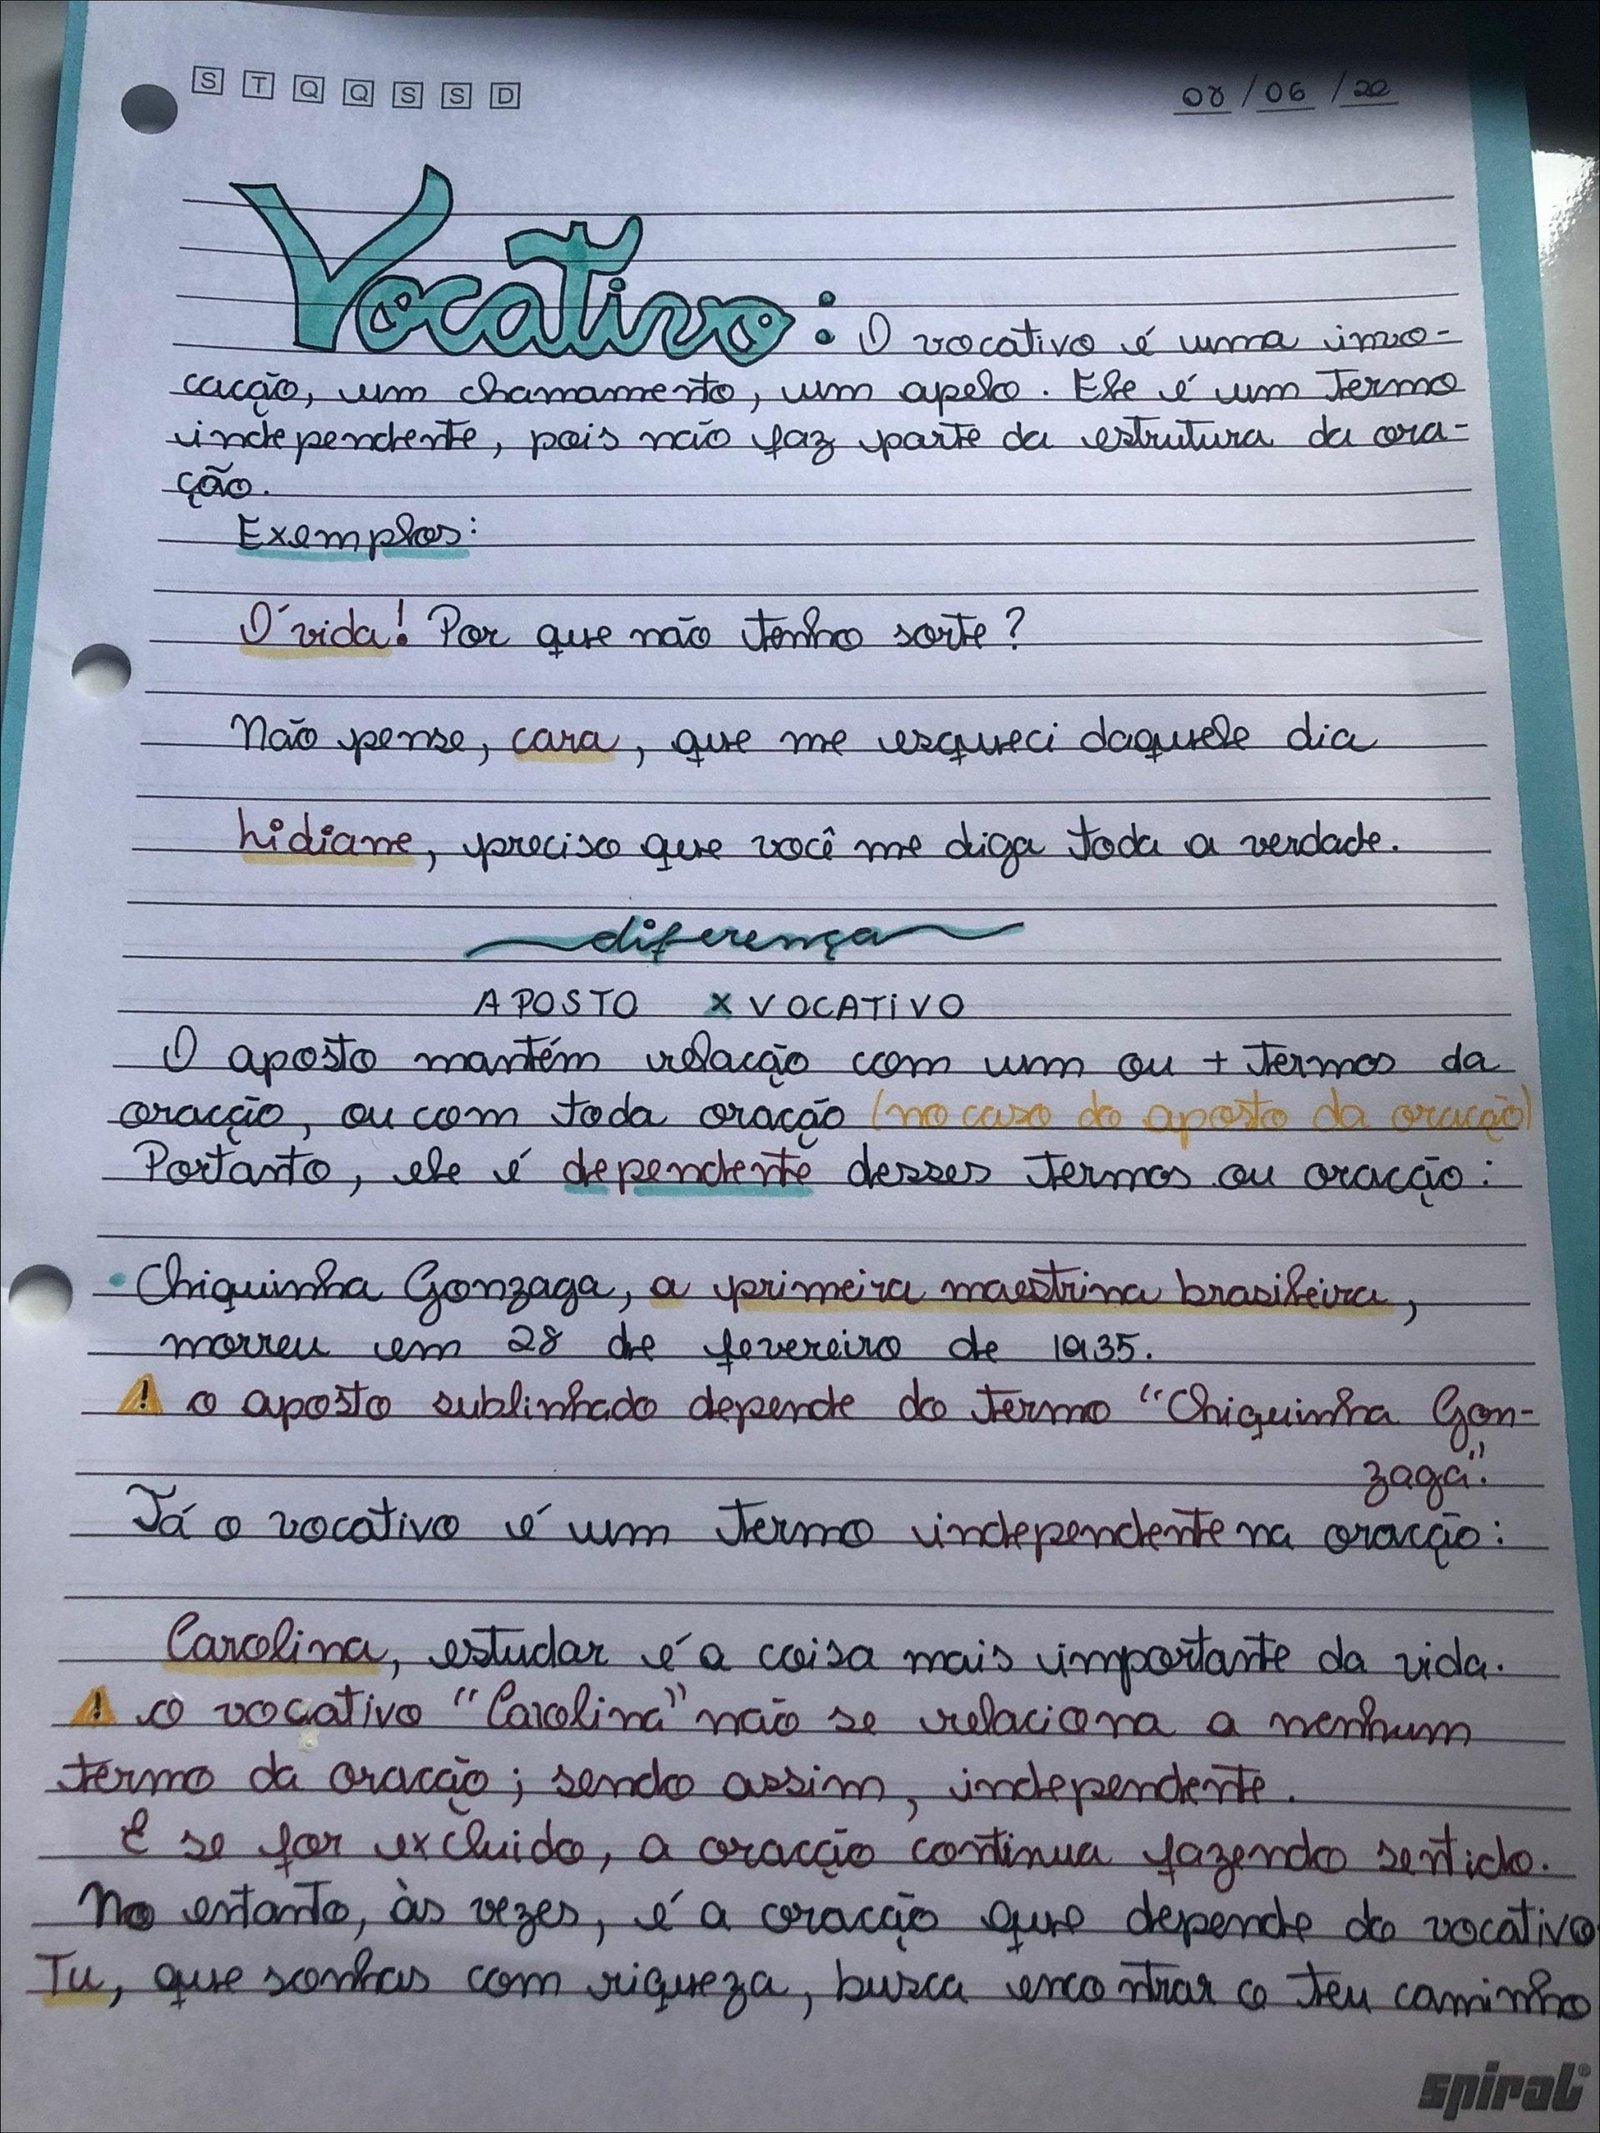 S T Q Q S S D
08 / 06 / 20
Vocativo: O vocativo é uma invo-
cação, um chamamento, um apelo. Ele é um termo
independente, pois não faz parte da estrutura da ora-
ção.
Exemplos:
Ó vida! Por que não tenho sorte?
Não pense, cara, que me esqueci daquele dia
Lidiane, preciso que você me diga toda a verdade.
diferença
APOSTO X VOCATIVO
O aposto mantém relação com um ou + termos da
oração, ou com toda oração (no caso do aposto da oração)
Portanto, ele é dependente desses termos ou oração:
• Chiquinha Gonzaga, a primeira maestrina brasileira,
morreu em 28 de fevereiro de 1935.
⚠ o aposto sublinhado depende do termo "Chiquinha Gon-
zaga".
Já o vocativo é um termo independente na oração:
Carolina, estudar é a coisa mais importante da vida.
⚠ o vocativo "Carolina" não se relaciona a nenhum
termo da oração; sendo assim, independente.
E se for excluido, a oração continua fazendo sentido.
No entanto, às vezes, é a oração que depende do vocativo
Tu, que sonhas com riqueza, busca encontrar o teu caminho
spiral®